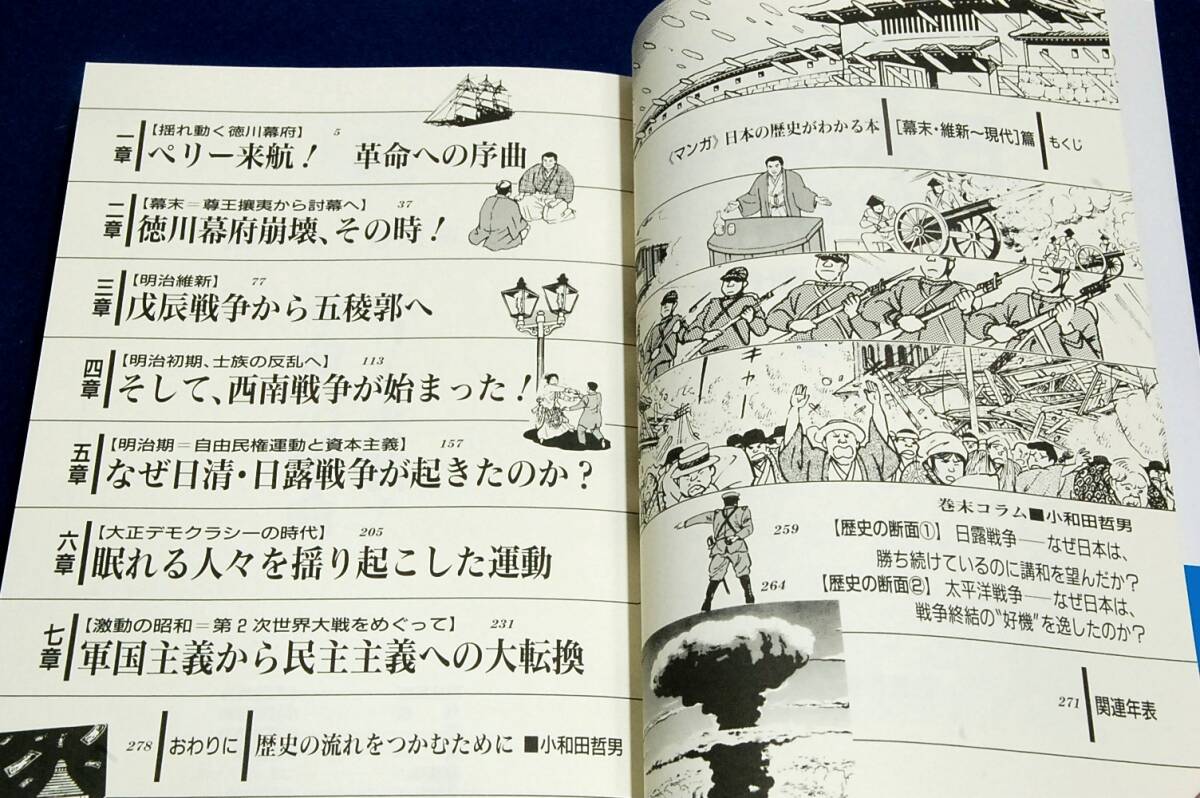 《マンガ》日本の歴史がわかる本 [幕末・維新〜現代]篇 もくじ
一章
【揺れ動く徳川幕府】 5
ペリー来航! 革命への序曲
二章
【幕末=尊王攘夷から討幕へ】 37
徳川幕府崩壊、その時!
三章
【明治維新】 77
戊辰戦争から五稜郭へ
四章
【明治初期、士族の反乱へ】 113
そして、西南戦争が始まった!
五章
【明治期=自由民権運動と資本主義】 157
なぜ日清・日露戦争が起きたのか?
六章
【大正デモクラシーの時代】 205
眠れる人々を揺り起こした運動
七章
【激動の昭和=第2次世界大戦をめぐって】 231
軍国主義から民主主義への大転換
キャー
巻末コラム■小和田哲男
259 【歴史の断面①】 日露戦争──なぜ日本は、
勝ち続けているのに講和を望んだか?
264 【歴史の断面②】 太平洋戦争──なぜ日本は、
戦争終結の"好機"を逸したのか?
271 関連年表
278 おわりに 歴史の流れをつかむために ■小和田哲男